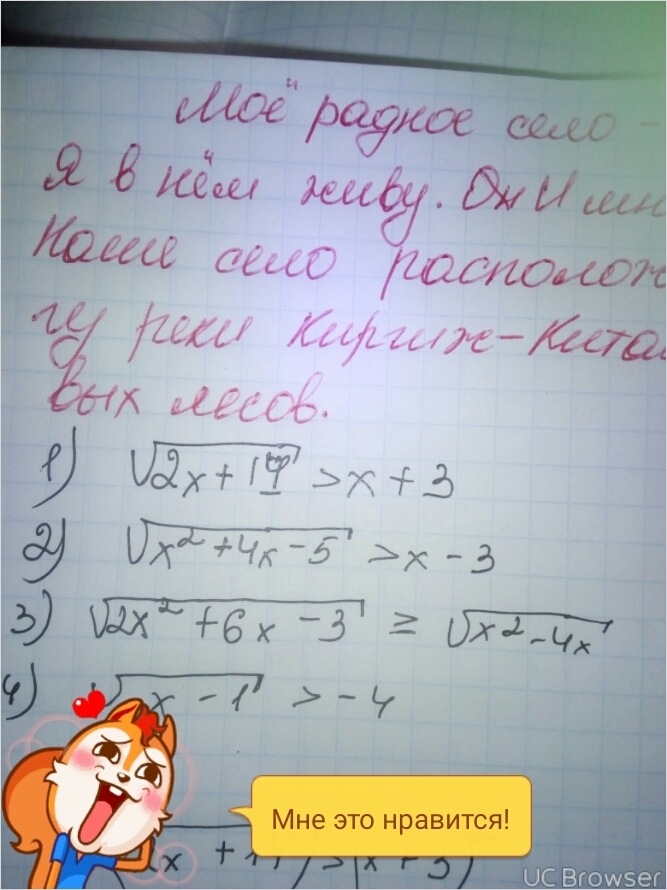 Моё радное село -
Я в нём живу. Он И мн
Наше село располож
гу реки Киргиж-Китай
вых лесов.
1) √2x + 17 > x + 3
2) √x² + 4x - 5 > x - 3
3) √2x² + 6x - 3 ≥ √x² - 4x
4) √x - 1 > -4
Мне это нравится!
x + 1 > x + 3)
UC Browser